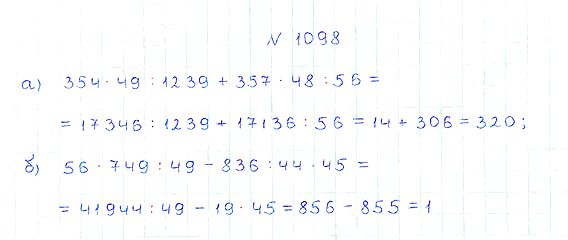 № 1098
а) 354 · 49 : 1239 + 357 · 48 : 56 =
= 17346 : 1239 + 17136 : 56 = 14 + 306 = 320;
б) 56 · 749 : 49 - 836 : 44 · 45 =
= 41944 : 49 - 19 · 45 = 856 - 855 = 1